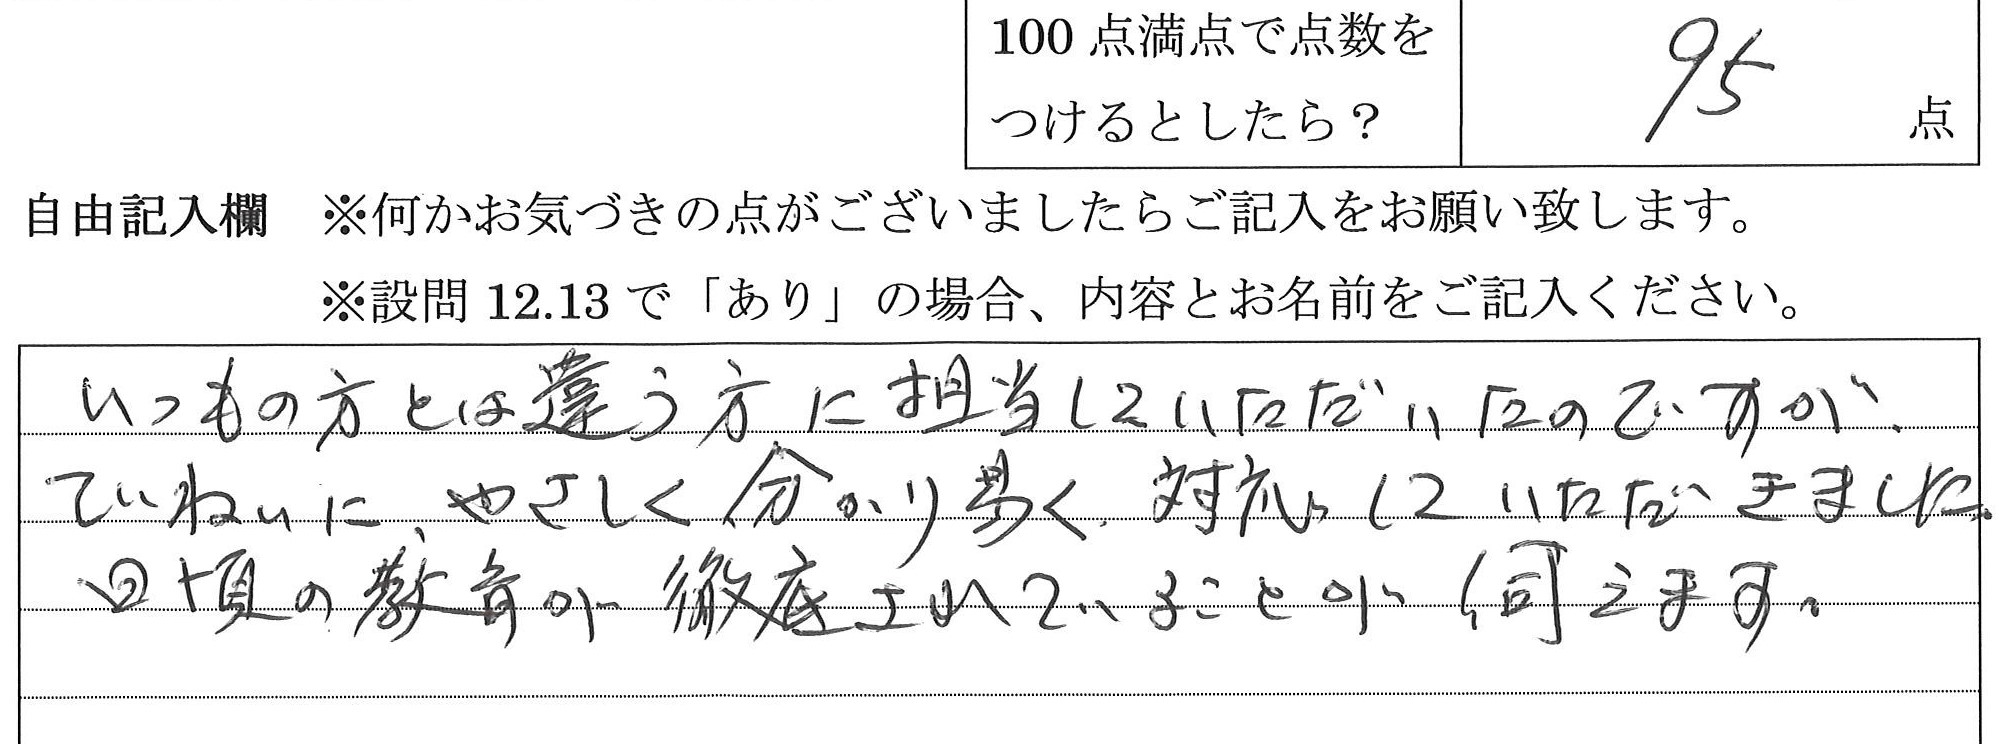 100点満点で点数を
つけるとしたら？
95
点
自由記入欄 ※何かお気づきの点がございましたらご記入をお願い致します。
※設問12.13で「あり」の場合、内容とお名前をご記入ください。
いつもの方とは違う方に担当していただいたのですが、
ていねいに、やさしく分かり易く、対応していただきました。
日頃の教育が徹底されていることが伺えます。